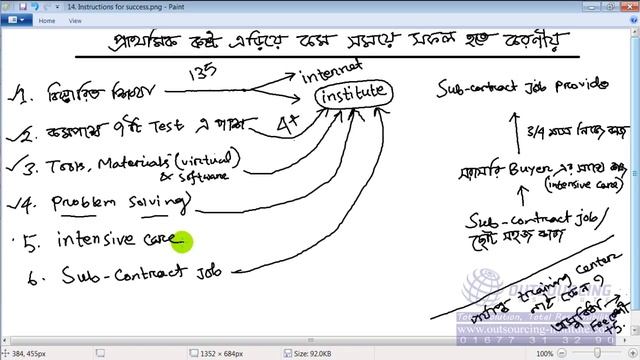 14. Instructions for success.png - Paint
Home
View
প্রাথমিক কষ্ট এড়িয়ে কম সময়ে সফল হতে করনীয়
1. বিস্তারিত শিখব
135
internet
institute
2. কমপক্ষে ৭টি Test এ পাশ
4+
3. Tools, Materials (virtual)
& software
4. Problem Solving)
5. intensive care
6. Sub-contract job
Sub-contract job provide
3/4 মাস নিজে কাজ
সরাসরি Buyer এর সাথে কাজ
(intensive care)
Sub-contract job/
ছোট সহজ কাজ
training center
নাই কেন?
OUTSOURCING
Total Solution, Total
www.outsourcing-institute.com
01677 31 32 90
384, 455px
1352 × 684px
Size: 92.0KB
100%